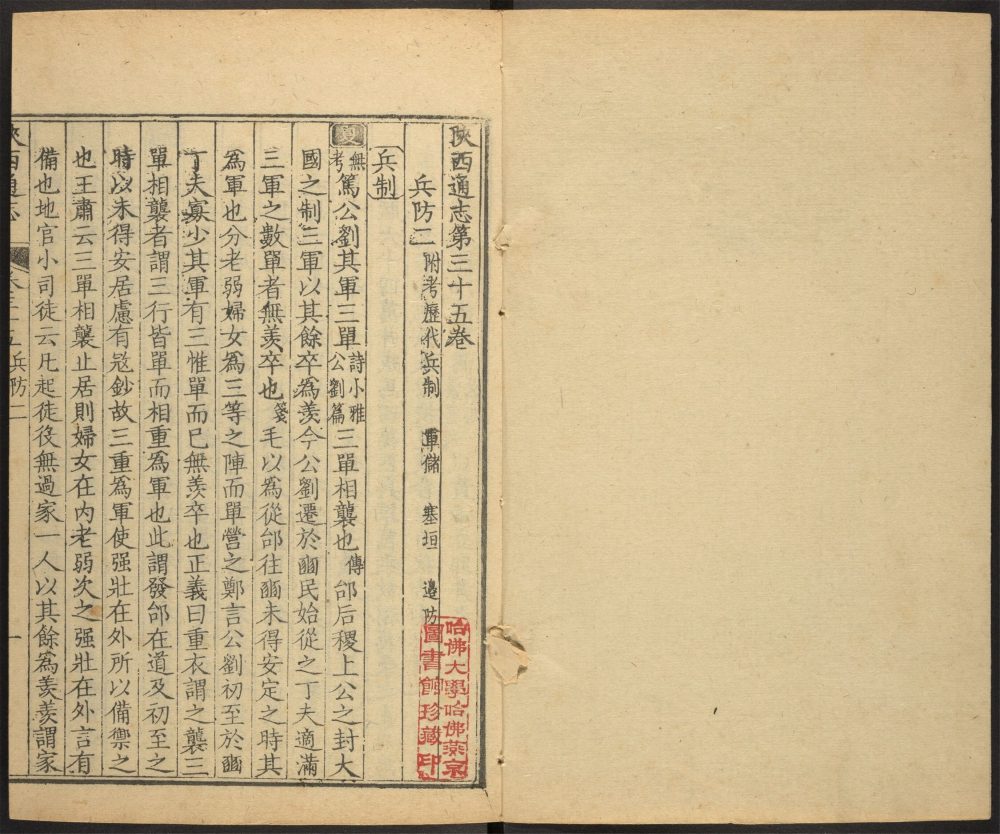 陝西通志第三十五卷
兵防二 附考歷代兵制 軍儲 塞垣 邊防
兵制
夏 無考 篤公劉其軍三單 詩小雅公劉篇 三單相襲也 傳 邰后稷上公之封大
國之制三軍以其餘卒為羨今公劉遷於豳民始從之丁夫適滿
三軍之數單者無羨卒也 箋 毛以為從邰往豳未得安定之時其
為軍也分老弱婦女為三等之陣而單營之鄭言公劉初至於豳
丁夫寡少其軍有三惟單而已無羨卒也正義曰重衣謂之襲三
單相襲者謂三行皆單而相重為軍也此謂發邰在道及初至之
時以未得安居慮有寇鈔故三重為軍使强壯在外所以備禦之
也王肅云三單相襲止居則婦女在内老弱次之强壯在外言有
備也地官小司徒云凡起徒役無過家一人以其餘為羨羨謂家
陝西通志 卷三十五 兵防二 一
哈佛大學哈佛燕京
圖書館珍藏印